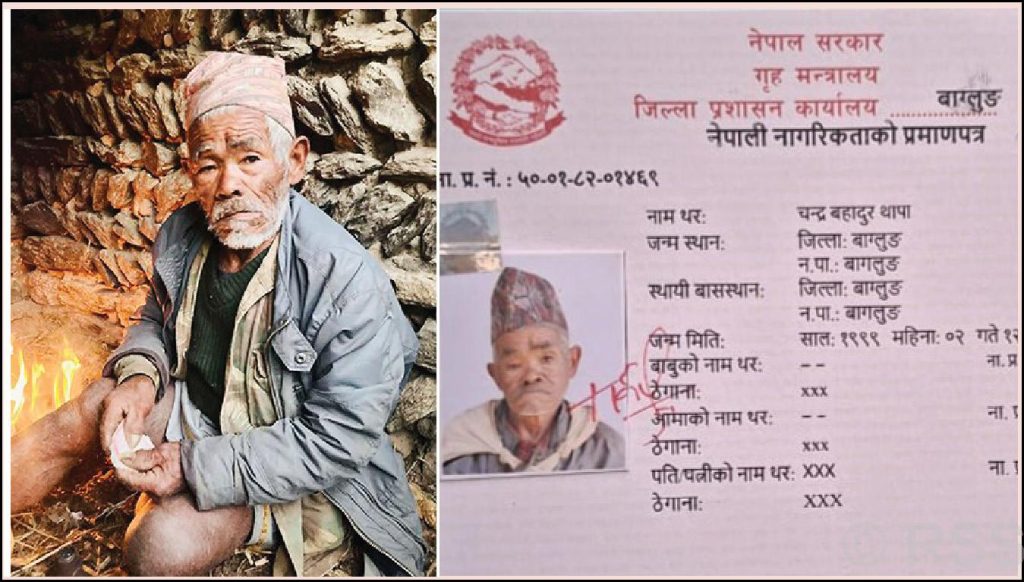 नेपाल सरकार
गृह मन्त्रालय
जिल्ला प्रशासन कार्यालय ............ बाग्लुङ
नेपाली नागरिकताको प्रमाणपत्र
ना. प्र. नं. : ५०-०१-८२-०१४६९
नाम थर: चन्द्र बहादुर थापा
जन्म स्थान: जिल्ला: बाग्लुङ
न.पा.: बागलुङ
स्थायी बासस्थान: जिल्ला: बाग्लुङ
न.पा.: बागलुङ
जन्म मिति: साल: १९९९ महिना: ०२ गते १२
बाबुको नाम थर: -- ना. प्र
ठेगाना: xxx
आमाको नाम थर: -- ना. प्र
ठेगाना: xxx
पति/पत्नीको नाम थर: XXX ना. प्र
ठेगाना: XXX
© RSS